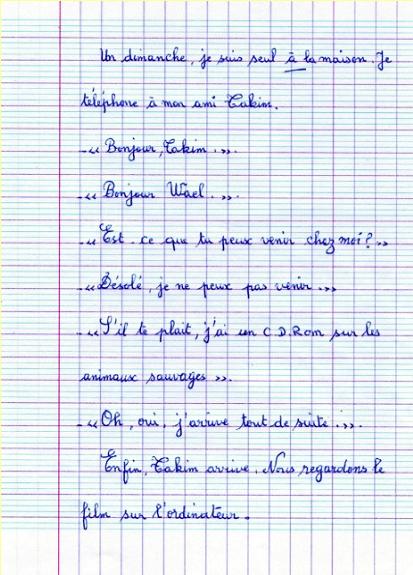 Un dimanche, je suis seul à la maison. Je
téléphone à mon ami Takim.
-« Bonjour, Takim. ».
-« Bonjour Wael. ».
-« Est-ce que tu peux venir chez moi? »
-« Désolé, je ne peux pas venir. »
-« S'il te plait, j'ai un C.D.Rom sur les
animaux sauvages ».
-« Oh, oui, j'arrive tout de suite. ».
Enfin, Takim arrive. Nous regardons le
film sur l'ordinateur.